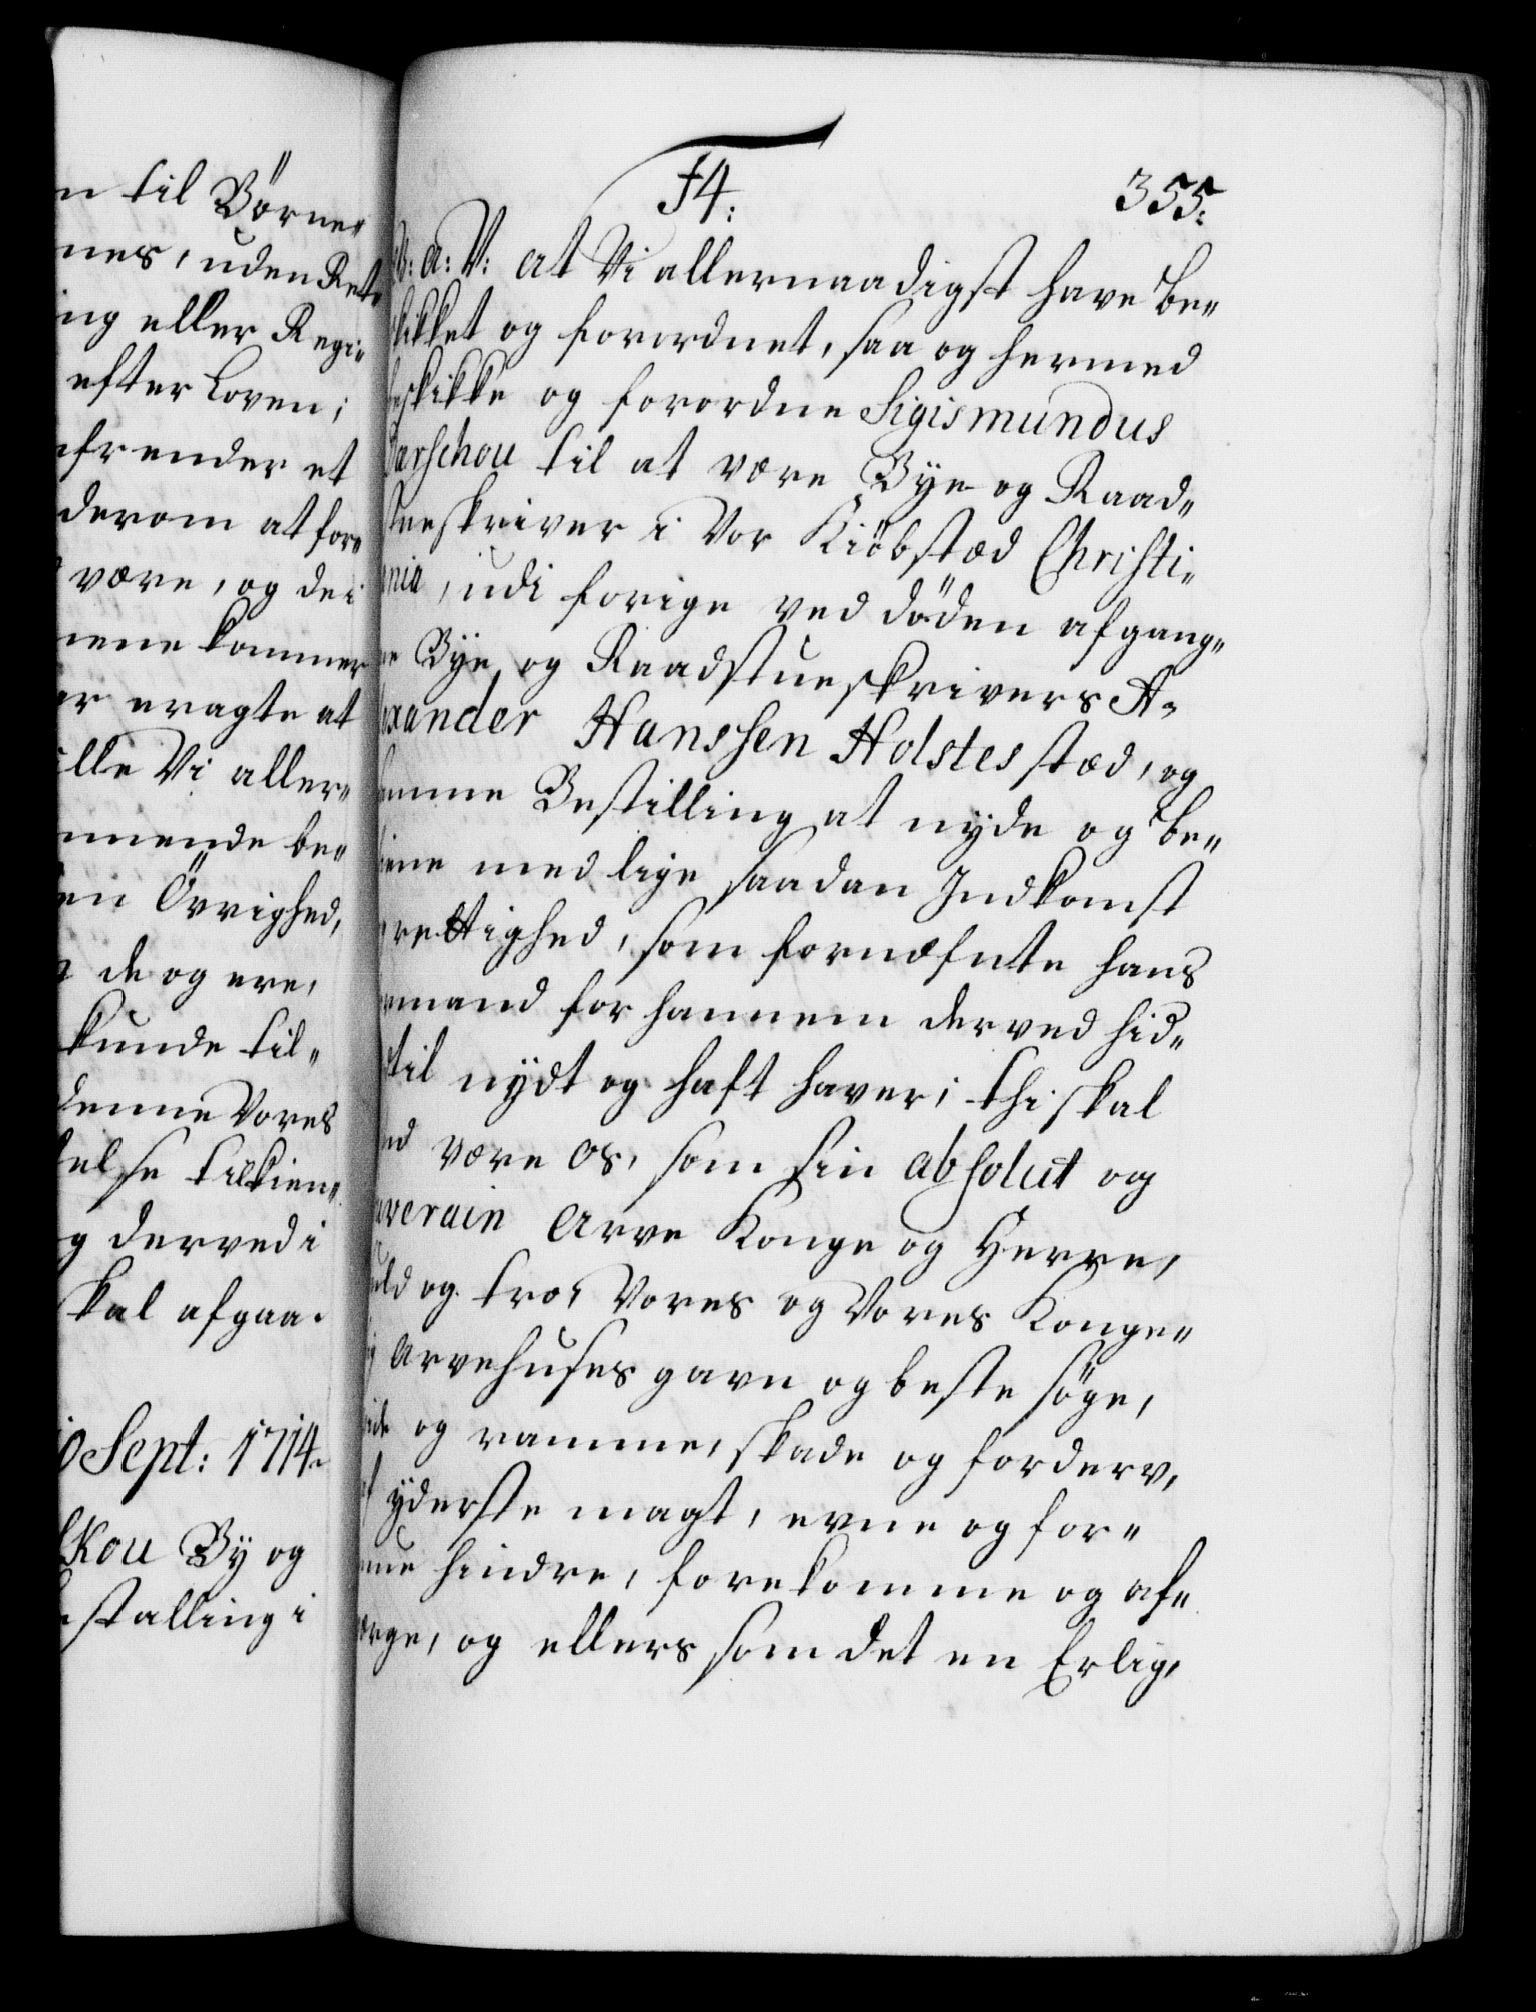 n til Börne„
nes, uden Ret„
ng eller Regi„
efter Loven;
frender et
derom at for„
være, og de i
nene kommer
er eragte at
ille Vi aller„
mende be„
en Övrighed,
de og ere,
kunde til„
denne Vores
else tilkien„
g derved i
skal afgaa.
10 Sept: 1714.
skou By og
estalling i
F4: 355:
G: A: V: at Vi allernaadigst have be„
skikket og forordnet, saa og hermed
beskikke og forordne Sigismundus
Darschou til at være Bye og Raad„
stueskriver i Vor Kiöbstæd Christi„
ania, udi forige ved döden afgang„
ne Bye og Raadstueskrivers A„
lexander Hanssen Holstes stæd, og
samme Bestilling at nyde og be„
tiene med lige saadan Indkomst
rettighed, som fornæfnte hans
formand for hannem derved hid„
til nydt og haft haver; thi skal
hand være os, som sin absolut og
souverain Arve Konge og Herre,
huld og tro, Vores og Vores Konge„
lig Arvehuses gavn og beste söge,
vide og ramme, skade og forderv,
af yderste magt, evne og for„
mue hindre, forekomme og af„
værge, og ellers som det en Erlig,